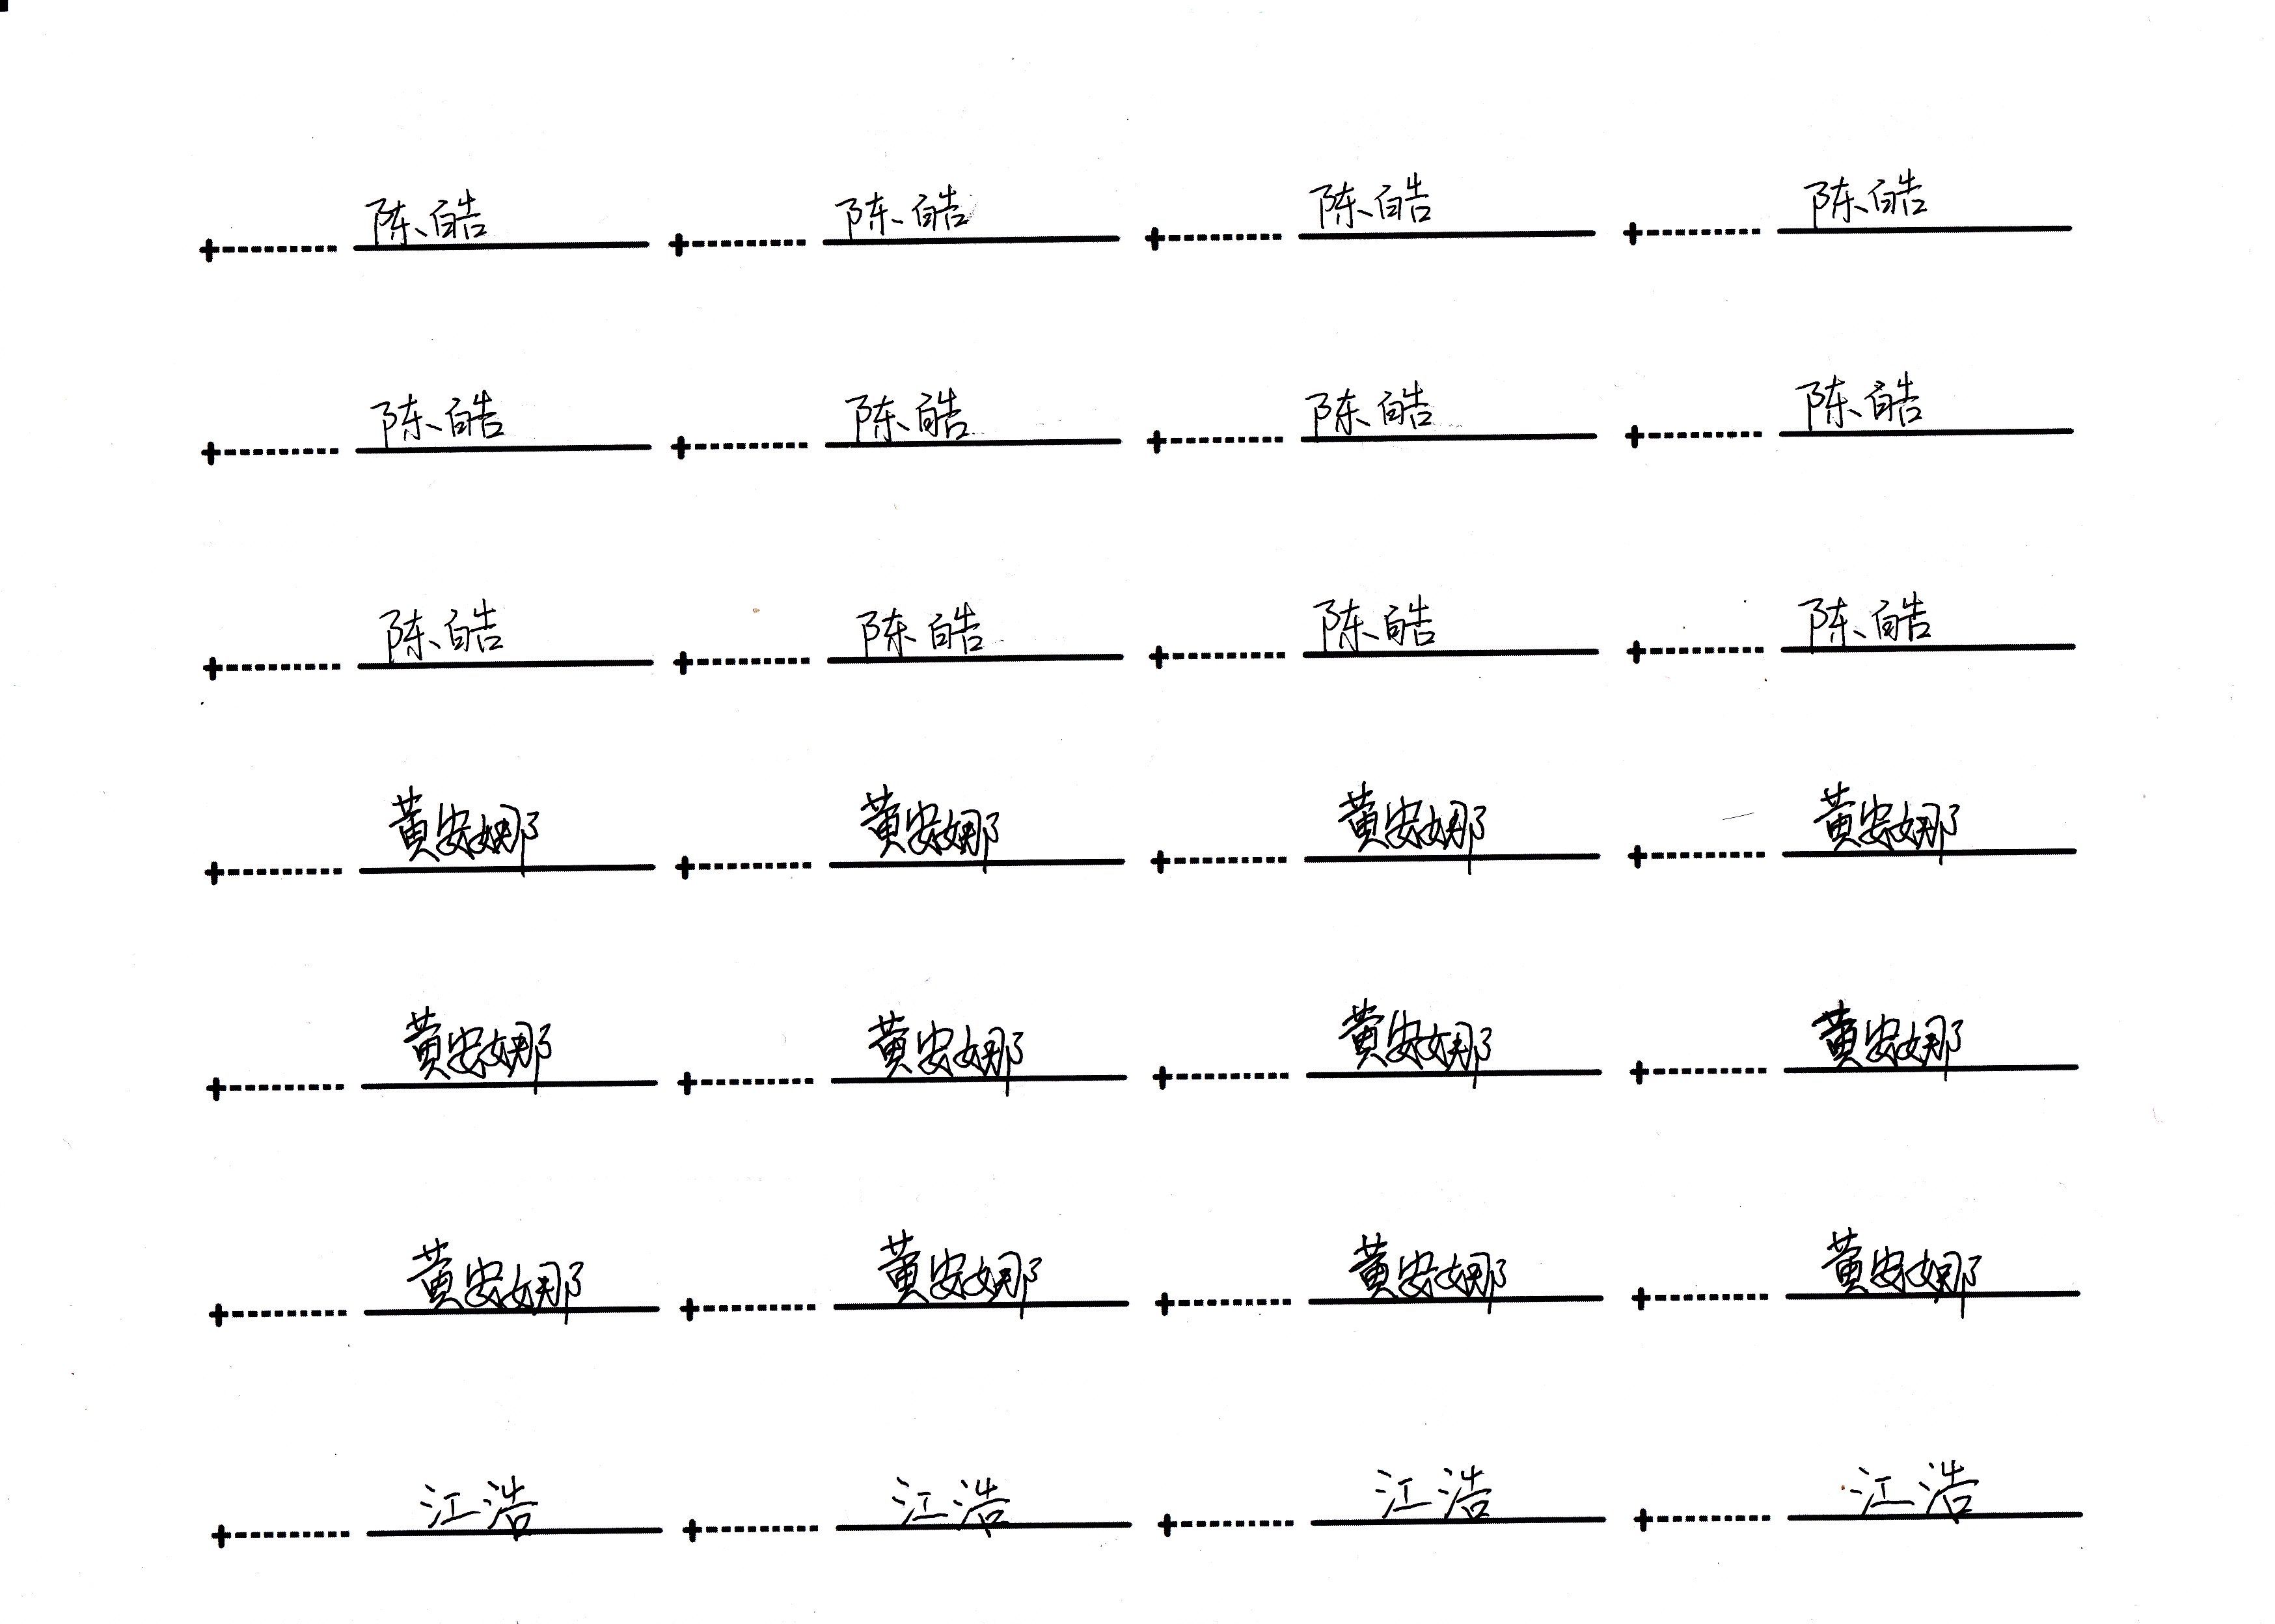 陈皓 陈皓 陈皓 陈皓
陈皓 陈皓 陈皓 陈皓
陈皓 陈皓 陈皓 陈皓
黄安娜 黄安娜 黄安娜 黄安娜
黄安娜 黄安娜 黄安娜 黄安娜
黄安娜 黄安娜 黄安娜 黄安娜
江浩 江浩 江浩 江浩